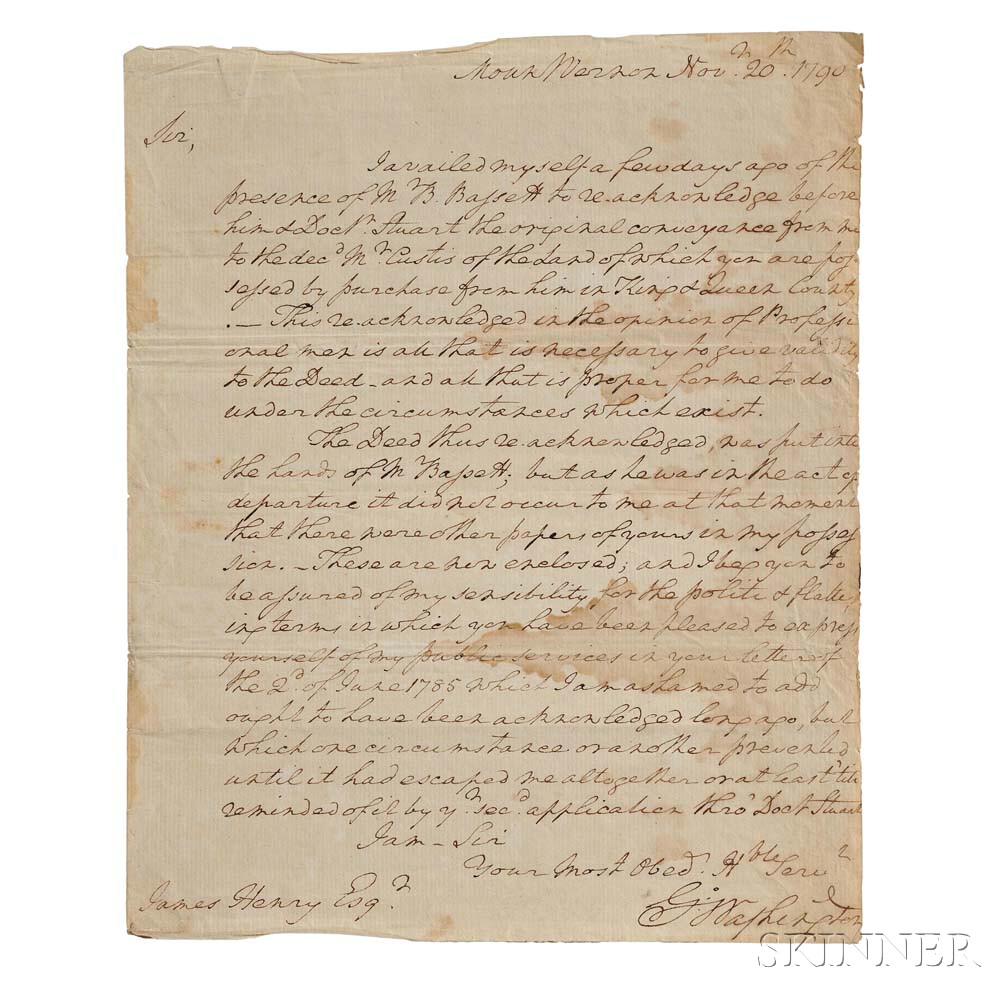 Mount Vernon Novr. 20th. 1790
Sir,
I availed myself a few days ago of the
presence of Mr. B. Bassett to re.acknowledge before
him & Doctr. Stuart the original conveyance from me
to the decd. Mr. Custis of the Land of which you are pos
sessed by purchase from him in King & Queen County
. — This re.acknowledged in the opinion of Professi
onal men is all that is necessary to give validity
to the Deed – and all that is proper for me to do
under the circumstances which exist.
The Deed thus re.acknowledged, was put into
the hands of Mr. Bassett; but as he was in the act of
departure it did not occur to me at that moment
that there were other papers of yours in my posses
sion. – These are now enclosed; and I beg you to
be assured of my sensibility for the polite & flatter
ing terms in which you have been pleased to express
yourself of my public services in your letter of
the 2d. of June 1785 which I am ashamed to add
ought to have been acknowledged long ago, but
which one circumstance or another prevented
until it had escaped me altogether or at least 'till
reminded of it by yr. secd. application thro' Doctr Stuart
I am – Sir
Your Most Obedt. Hble Servt
James Henry Esqr.
Go: Washington
SKINNER